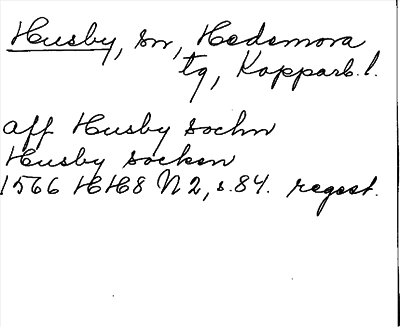 Husby, sn, Hedemora
tg, Kopparb. l.
aff Husby sochn
Husby socken
1566 HH8 N2, s. 84. regest.